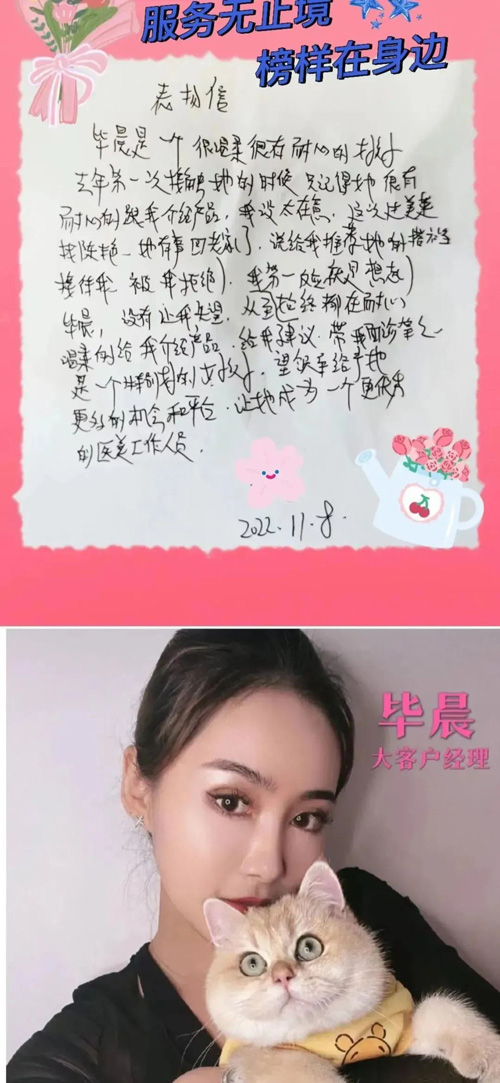 服务无止境
榜样在身边
表扬信
毕晨是一个很温柔很有耐心的
去年第一次接触她的时候 只记得她很有
耐心的跟我介绍产品,我没太在意,这次过来是
她有事回老家了,说给我推荐她的
被我拒绝),我第一反应就是想到
毕晨,没有让我失望,从到始终都在耐心
温柔的给我介绍产品 给我建议 带我面诊
是一个特别好的女孩,望领导给予她
更多的机会和平台,让她成为一个更优秀
的医美工作人员.
2022.11.8.
毕晨
大客户经理